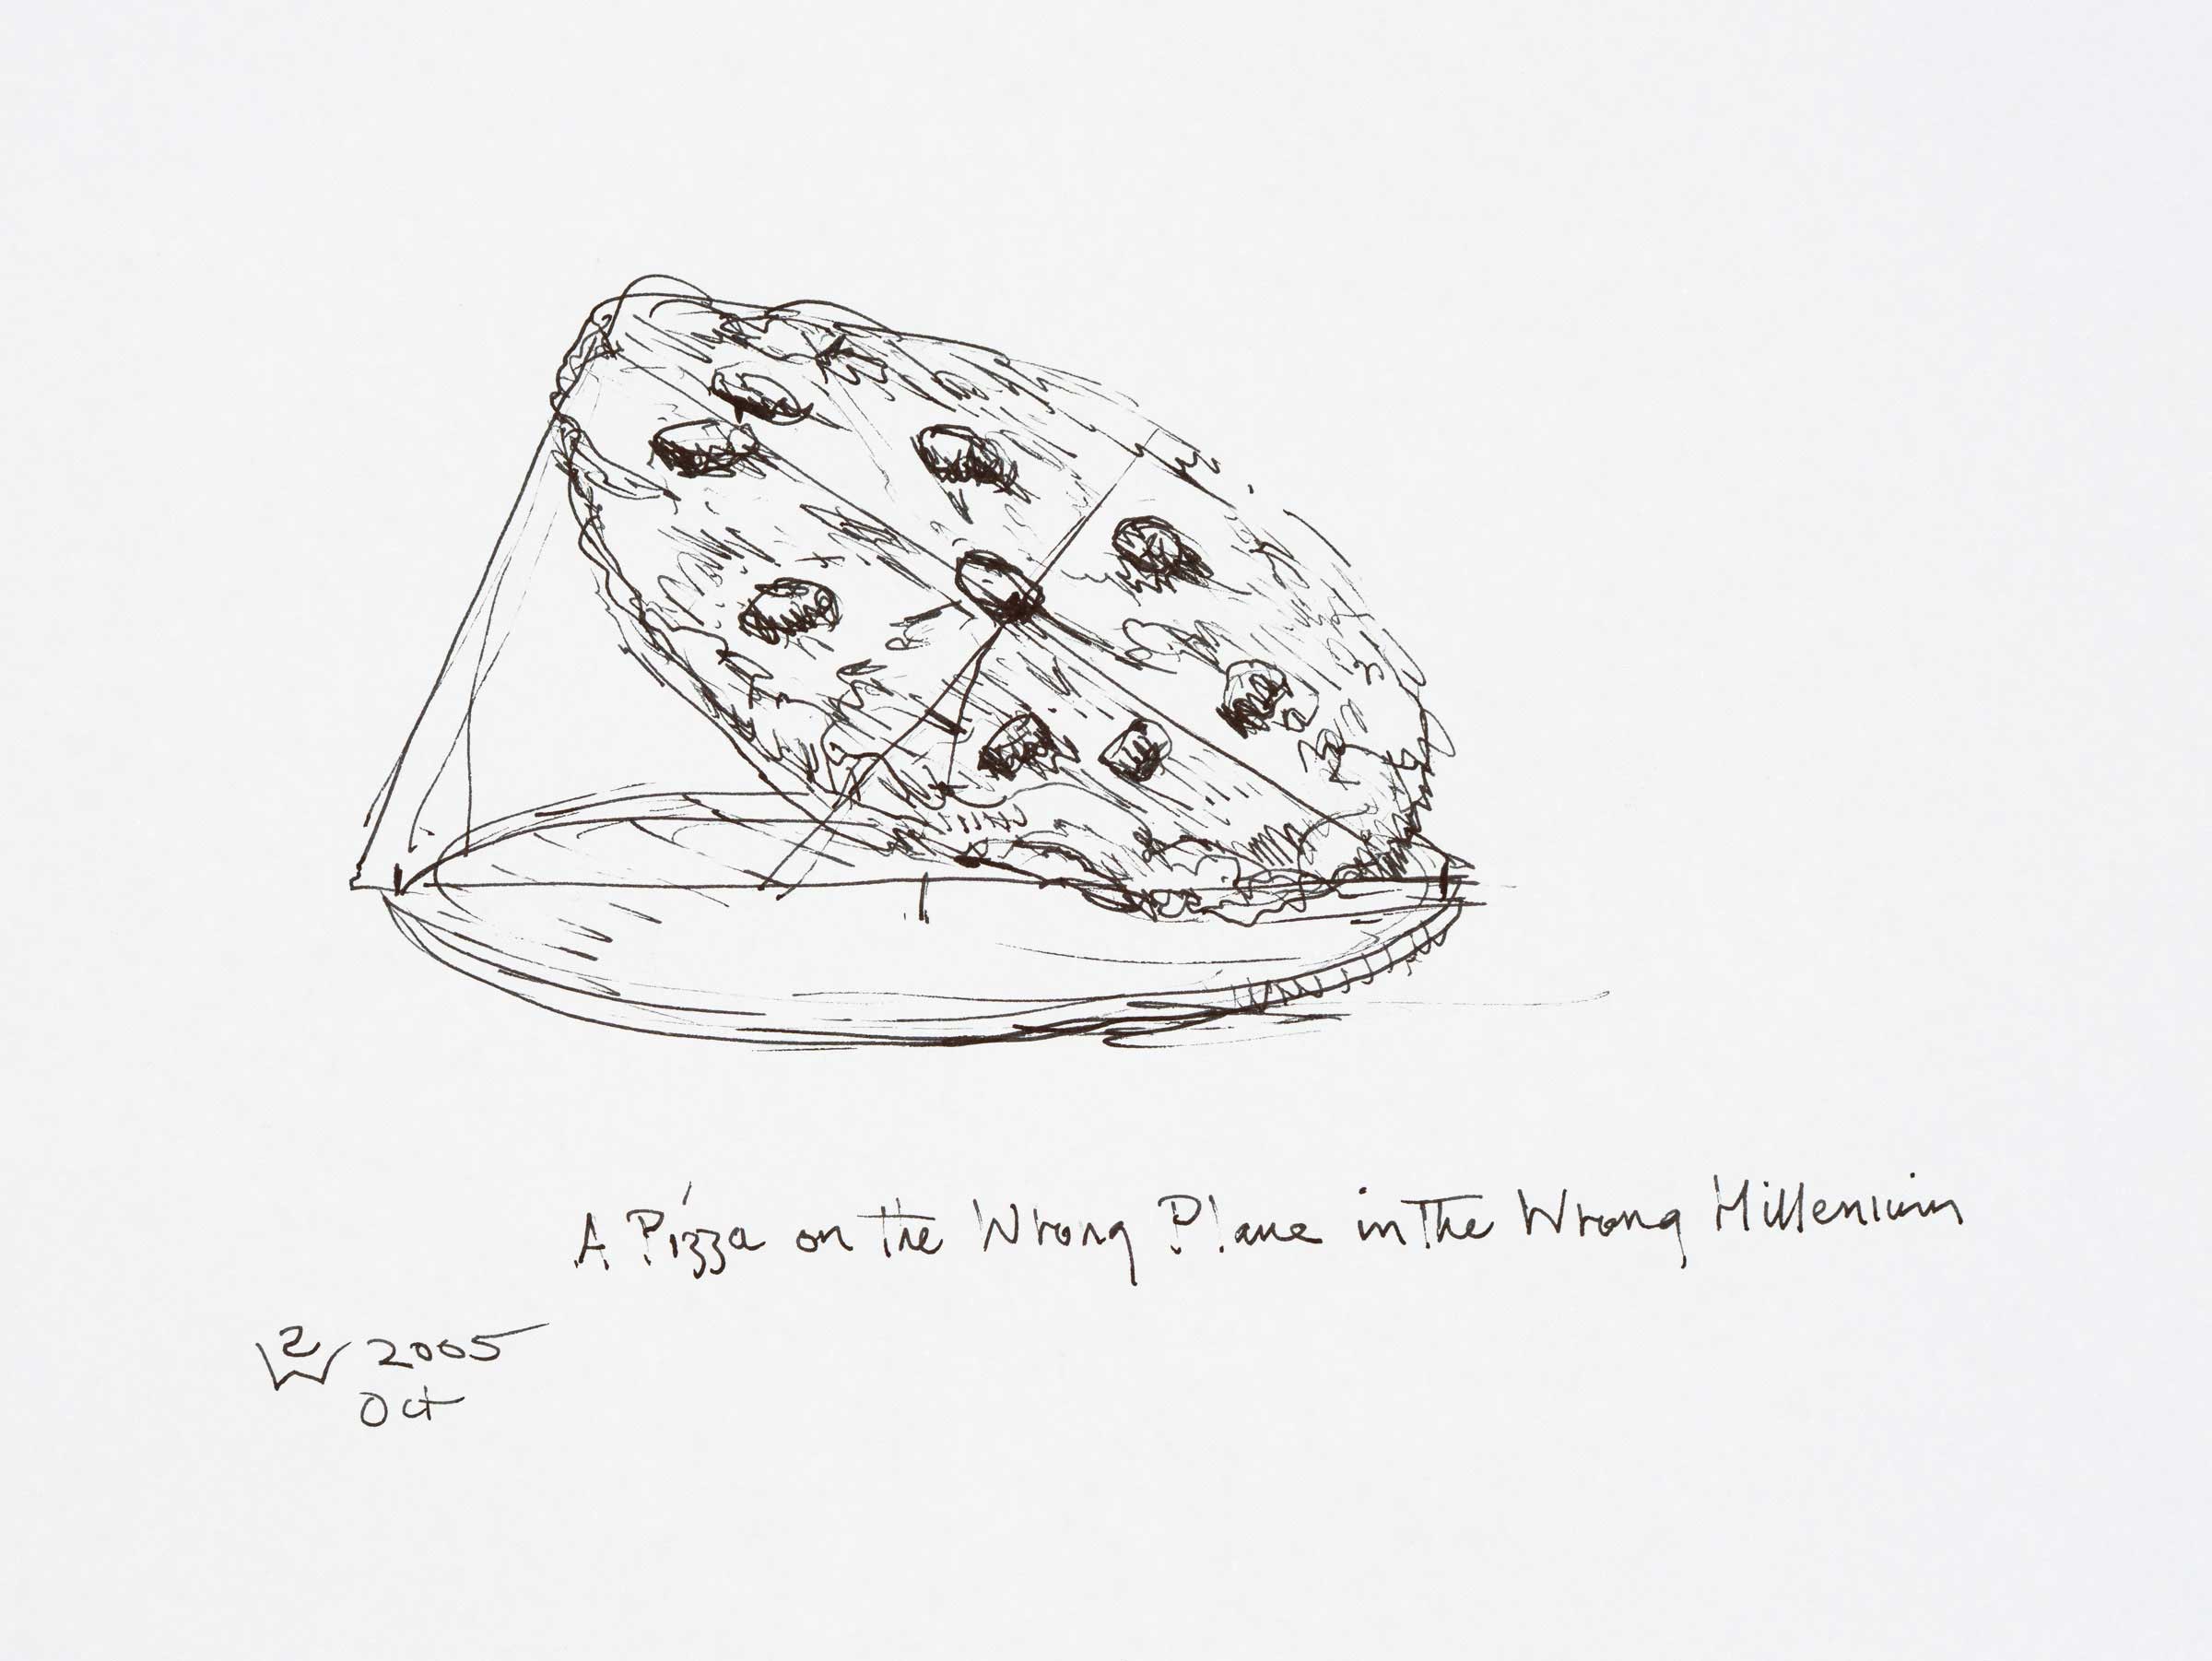 A Pizza on the Wrong Plane in the Wrong Millenium
2005
Oct